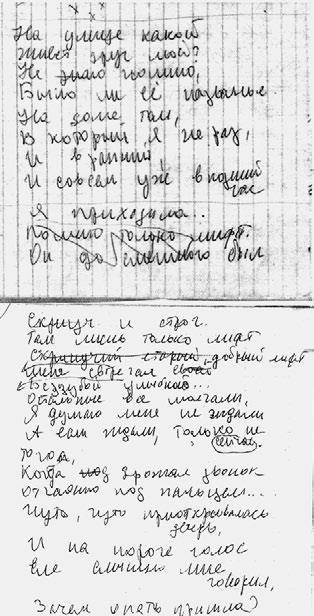 На улице какой
Живет друг мой?
Не знаю помню,
Было ли ей названье.
На доме там,
В который я не раз,
И в ранний,
И совсем уже в поздний
час
Я приходила..
Помню только лифт.
Он до смешного был
Скрипуч. и строг.
Там лишь только лифт
Скрипучий старый, добрый лифт
Меня встречал своей
Беззубой улыбкою...
Остальные все молчали,
Я думаю меня не ждали
А если ждали, только не
сейчас.
тогда,
Когда под дрожал звонок
отчаянно под пальцем...
Чуть, чуть приоткрывалась
дверь,
И на пороге голос
мне,
говорил,
Зачем опять пришла?